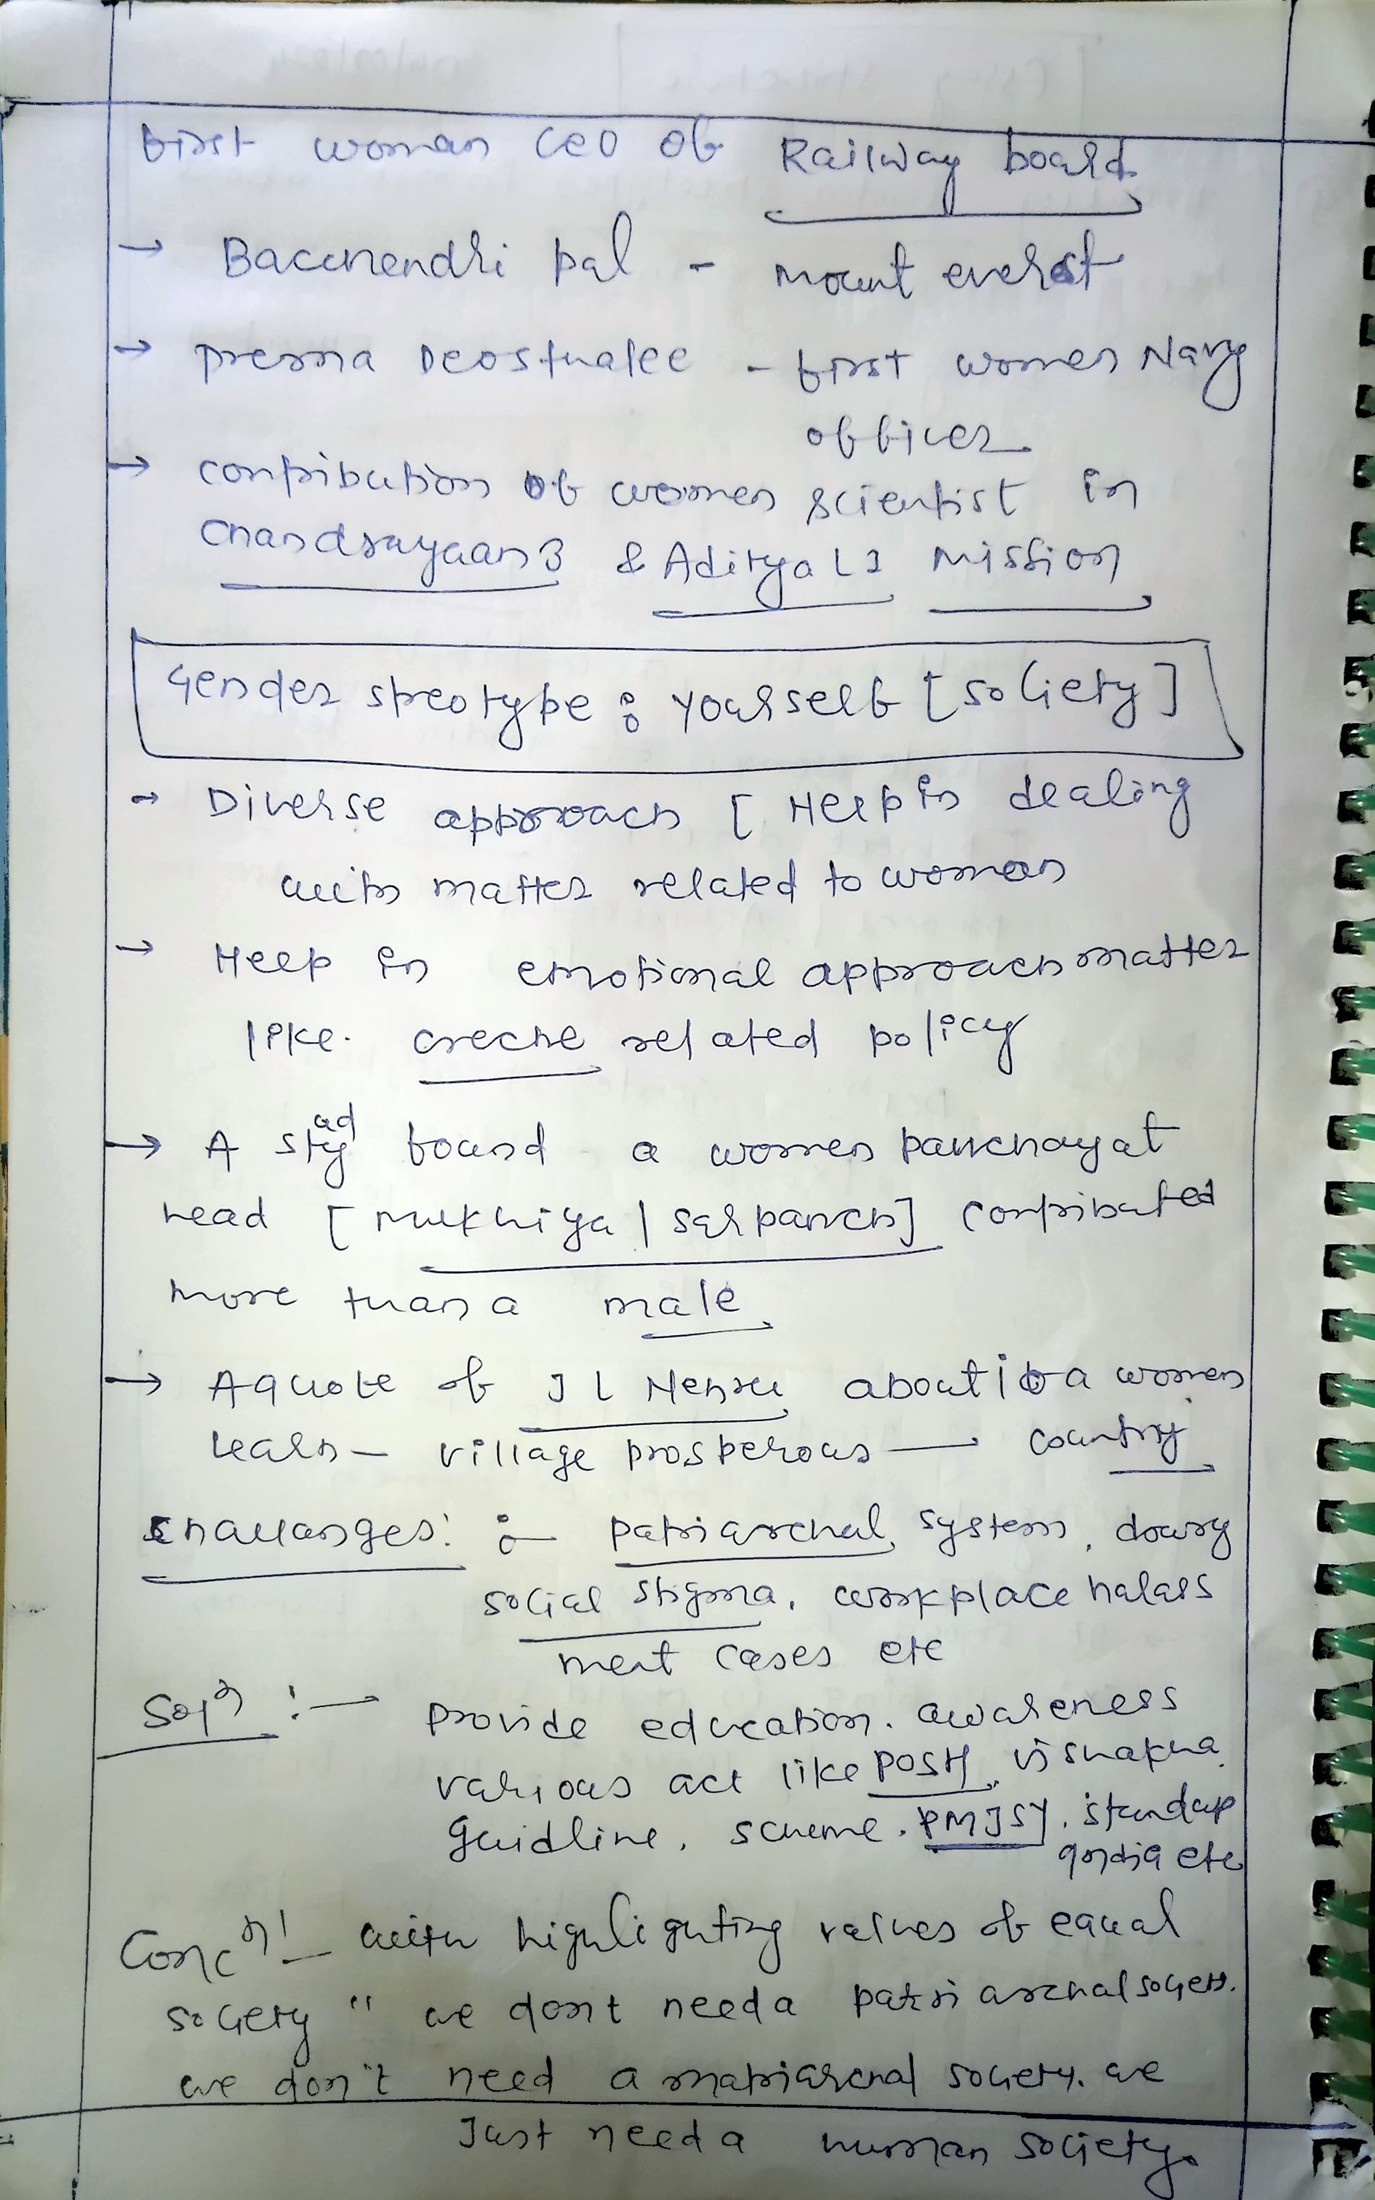 first woman CEO of Railway board
→ Bachhendri pal - mount everest
→ prerna Deosthalee - first women Navy
officer
→ contribution of women scientist in
Chandrayaan 3 & Aditya L1 Mission
Gender streotype : yourself [society]
→ Diverse approach [ Help in dealing
with matter related to woman
→ Help in emotional approach matter
like creche related policy
→ A study found a women panchayat
head [mukhiya | sarpanch] contributed
more than a male
→ A quote of J L Nehru about if a women
learn — village prosperous — country
challanges: :- patriarchal system, dowry
social stigma, workplace harass
ment cases etc
Sol^n :- provide education. awareness
various act like POSH, vishakha
guidline, scheme. PMJSY, standup
india etc
Conc^n :- with highlighting values of equal
society " we don't need a patriarchal society.
we don't need a matriarchal society. we
Just need a human society.